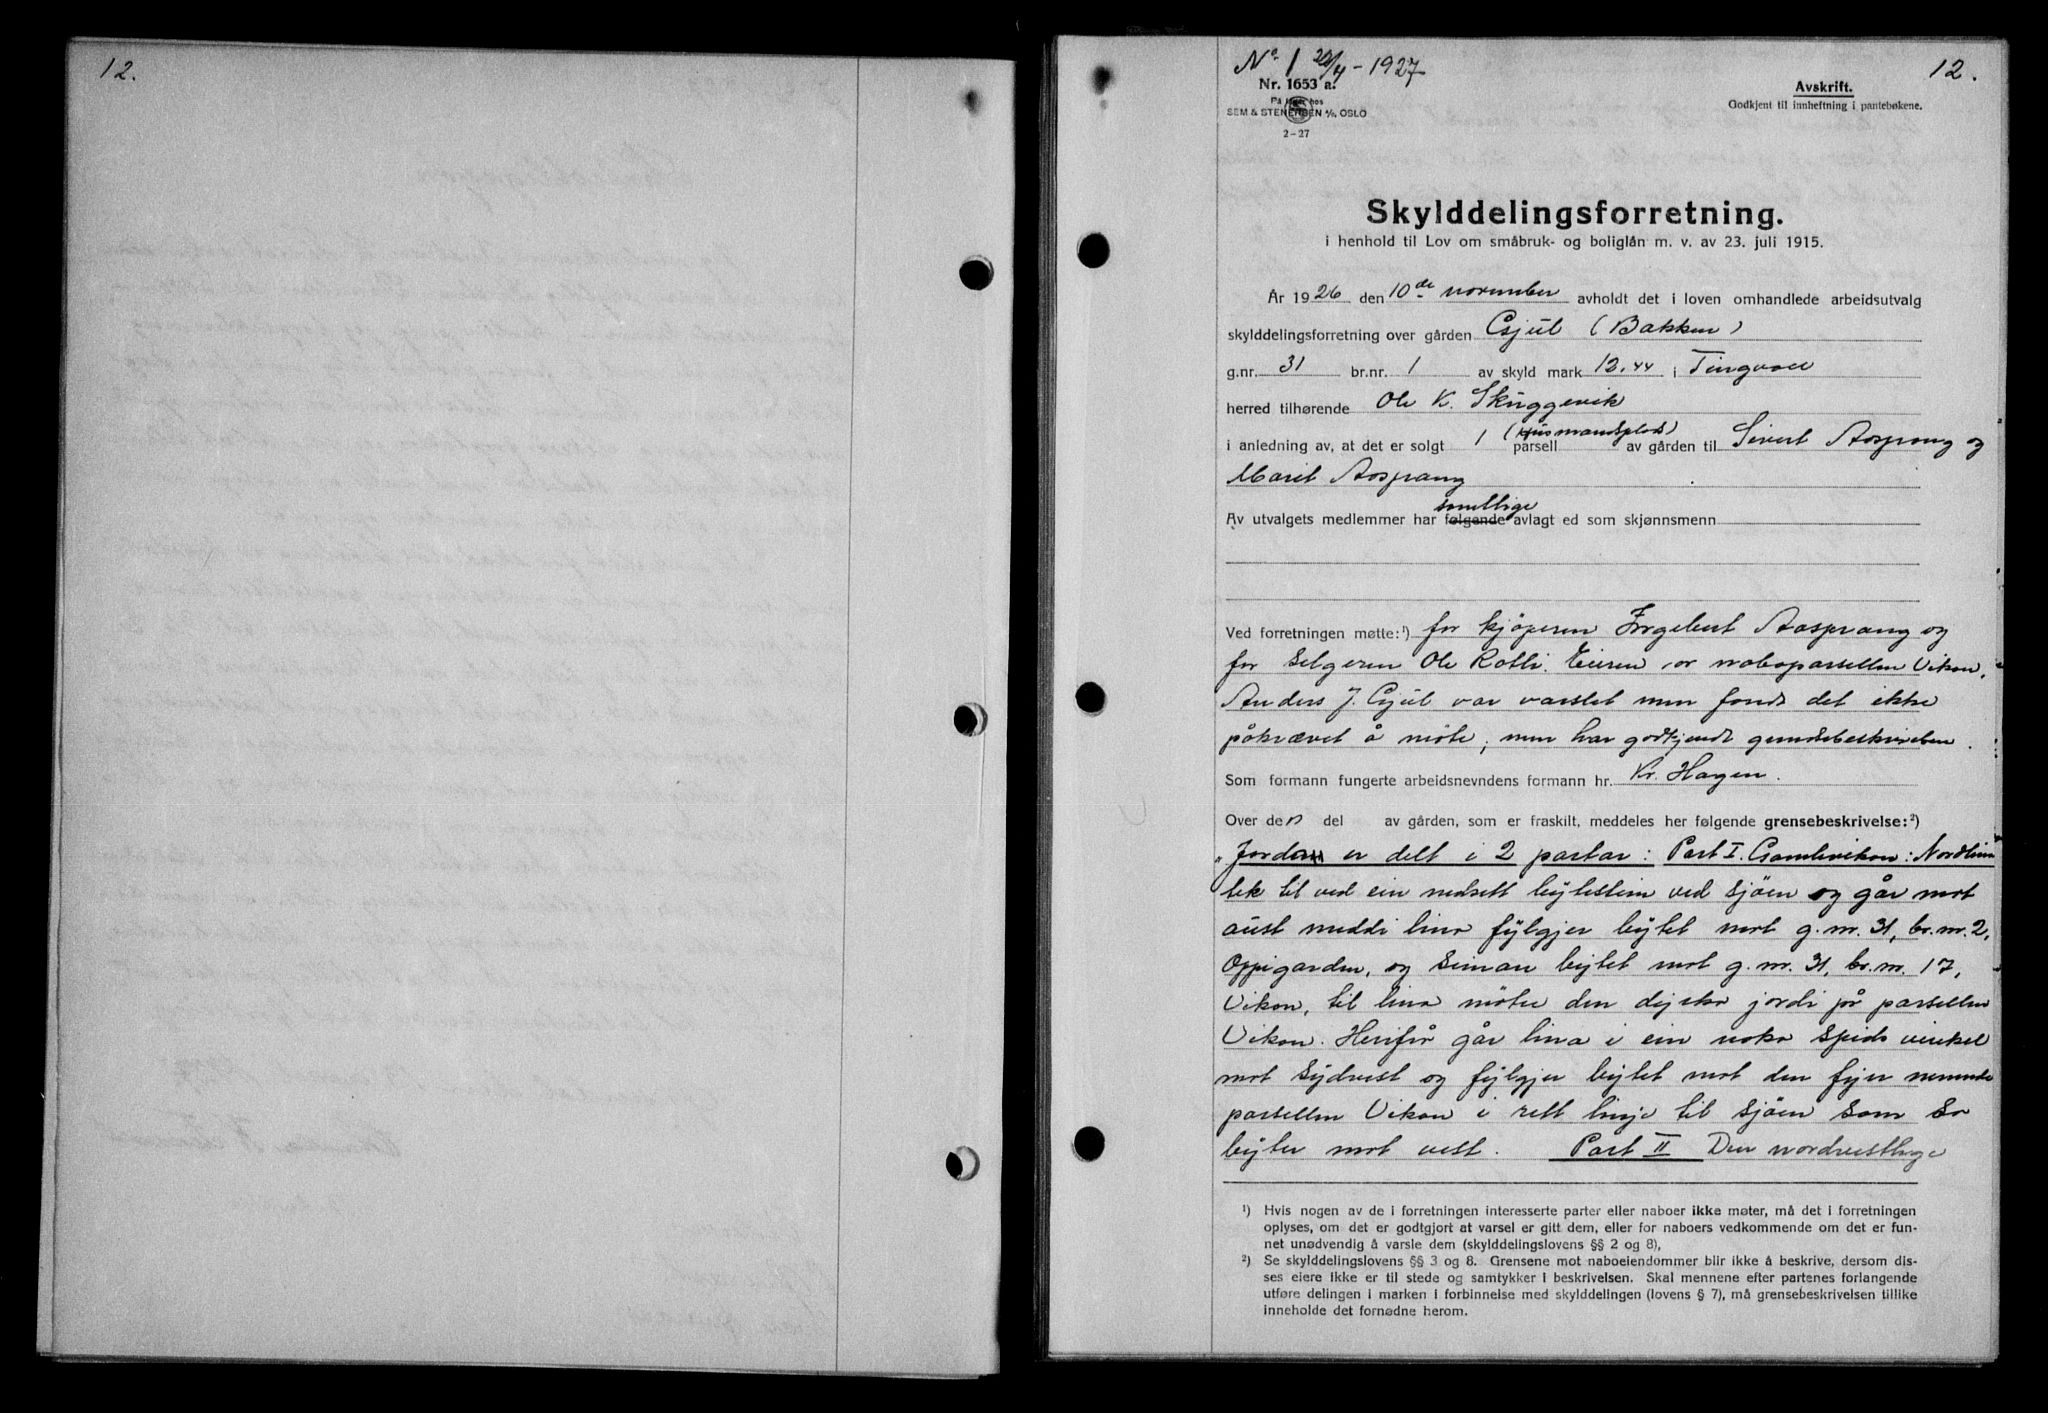 12.
No 1 22/4 - 1927
12.
Nr. 1653 a.
På lager hos
SEM & STENERSEN A/S, OSLO
2-27
Avskrift.
Godkjent til innheftning i pantebøkene.
Skylddelingsforretning.
i henhold til Lov om småbruk- og boliglån m. v. av 23. juli 1915.
År 1926 den 10de november avholdt det i loven omhandlede arbeidsutvalg
skylddelingsforretning over gården Gjül (Bakken)
g.nr. 31 br.nr. 1 av skyld mark 12.44 i Tingvoll
herred tilhørende Ole K. Skuggevik
i anledning av, at det er solgt 1 (Husmandsplads) parsell av gården til Sivert Aasprang og
Marit Aasprang
Av utvalgets medlemmer har følgende samtlige avlagt ed som skjønnsmenn
Ved forretningen møtte:¹) for kjøperen Ingebert Aasprang og
for selgeren Ole Rotli. Eieren av naboparsellen Vikan,
Anders J. Gjül var varslet men fandt det ikke
påkrævet å møte, men har godkjendt grensebeskrivelsen.
Som formann fungerte arbeidsnevndens formann hr. Kr. Hagen.
Over den del av gården, som er fraskilt, meddeles her følgende grensebeskrivelse:²)
"Jorda er delt i 2 partar: Part I. Gamlevikan: Nordlina
tek til ved ein nedsett bytestein ved sjøen og går mot
aust meddi lina fylgjer bytet mot g.nr. 31, br.nr. 2,
Oppigarden, og seinare bytet mot g.nr. 31, br.nr. 17,
Vikan, til lina møter den dyrka jordi på parsellen
Vikan. Herifrå går lina i ein noko spids vinkel
mot sydvest og fylgjer bytet mot den fyrr nemnde
parsellen Vikan i rett linje til sjøen som so
byter mot vest. Part II Den nordvestlege
¹) Hvis nogen av de i forretningen interesserte parter eller naboer ikke møter, må det i forretningen
oplyses, om det er godtgjort at varsel er gitt dem, eller for naboers vedkommende om det er fun-
net unødvendig å varsle dem (skylddelingslovens §§ 2 og 8),
²) Se skylddelingslovens §§ 3 og 8. Grensene mot naboeiendommer blir ikke å beskrive, dersom dis-
ses eiere ikke er til stede og samtykker i beskrivelsen. Skal mennene efter partenes forlangende
utføre delingen i marken i forbinnelse med skylddelingen (lovens § 7), må grensebeskrivelsen tillike
inneholde det fornødne herom.